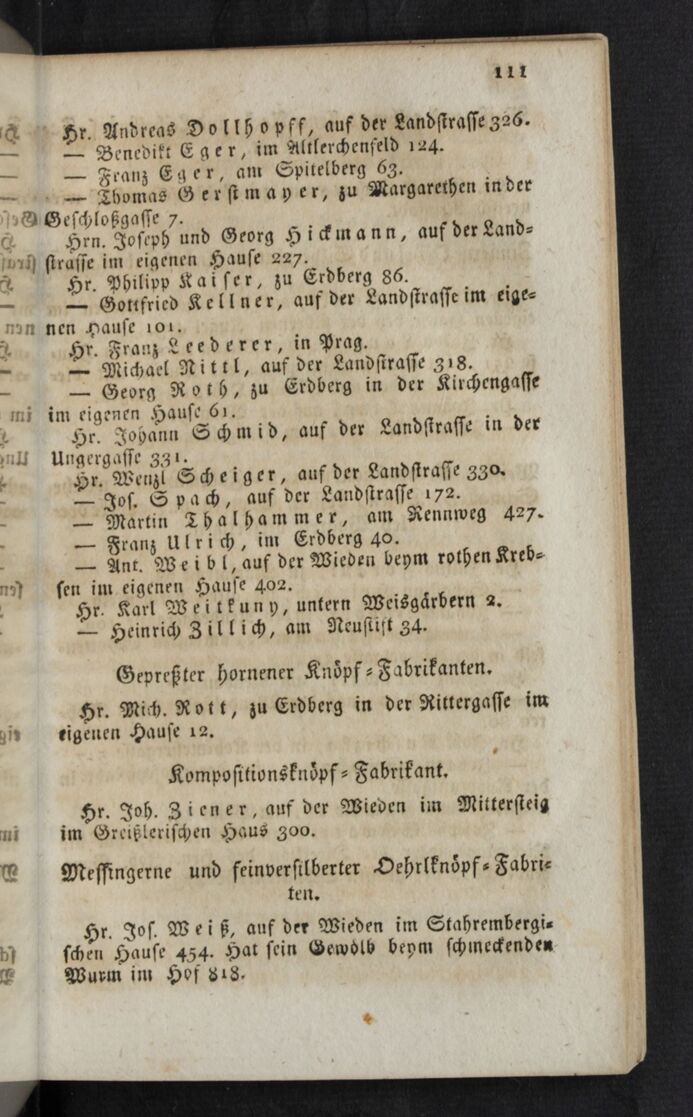 111
Hr. Andreas Dollhopff, auf der Landstrasse 326.
— Benedikt Eger, im Altlerchenfeld 124.
— Franz Eger, am Spitelberg 63.
— Thomas Gerstmayer, zu Margarethen in der
Geschloßgasse 7.
Hrn. Joseph und Georg Hickmann, auf der Land=
strasse im eigenen Hause 227.
Hr. Philipp Kaiser, zu Erdberg 86.
— Gottfried Kellner, auf der Landstrasse im eige=
nen Hause 101.
Hr. Franz Leederer, in Prag.
— Michael Nittl, auf der Landstrasse 318.
— Georg Roth, zu Erdberg in der Kirchengasse
im eigenen Hause 61.
Hr. Johann Schmid, auf der Landstrasse in der
Ungergasse 331.
Hr. Wenzl Scheiger, auf der Landstrasse 330.
— Jos. Spach, auf der Landstrasse 172.
— Martin Thalhammer, am Rennweg 427.
— Franz Ulrich, im Erdberg 40.
— Ant. Weibl, auf der Wieden beym rothen Kreb=
sen im eigenen Hause 402.
Hr. Karl Weitkuny, untern Weisgärbern 2.
— Heinrich Zillich, am Neustift 34.
Gepreßter hornener Knöpf=Fabrikanten.
Hr. Mich. Rott, zu Erdberg in der Rittergasse im
eigenen Hause 12.
Kompositionsknöpf=Fabrikant.
Hr. Joh. Ziener, auf der Wieden im Mittersteig
im Greißlerischen Haus 300.
Messingerne und feinversilberter Oehrlknöpf=Fabri=
ten.
Hr. Jos. Weiß, auf der Wieden im Stahrembergi=
schen Hause 454. Hat sein Gewölb beym schmeckenden
Wurm im Hof 818.